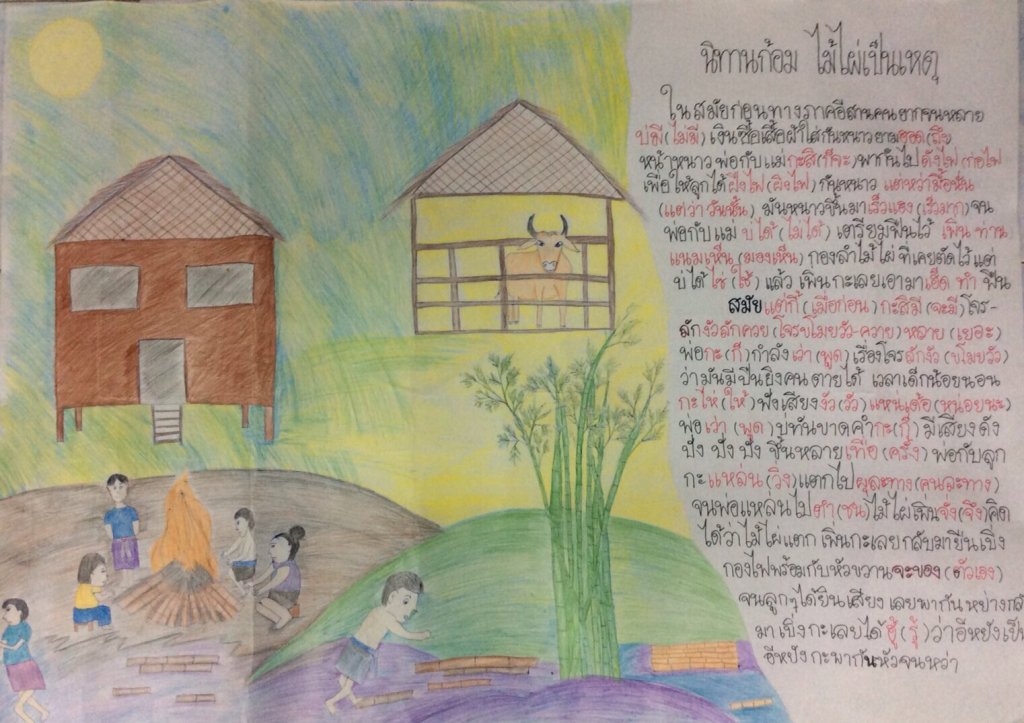 นิทานก้อม ไม้ไผ่เป็นเหตุ
ในสมัยก่อนทางภาคอีสานคนยากจนหลาย
บ่มี(ไม่มี) เงินซื้อเสื้อผ้าใส่กันหนาวยามฮอด(ถึง)
หน้าหนาว พ่อกับแม่กะสิ(ก็จะ)พากันไปดังไฟ(ก่อไฟ
เพื่อให้ลูกได้ฝิงไฟ(ผิงไฟ) กันหนาว แต่หว่ามื้อนั่น
(แต่ว่าวันนั้น) มันหนาวขึ้นมาเร็วแฮง(เร็วมาก)จน
พ่อกับแม่ บ่ได้(ไม่ได้) เตรียมฟืนไว้ เพิ่น ท่าน
แนมเห็น(มองเห็น) กองลำไม้ไผ่ที่เคยตัดไว้แต่
บ่ได้ใซ่(ใช้) แล้ว เพิ่นกะเลยเอามาเฮ็ด ทำ ฟืน
สมัยแต่กี้(เมื่อก่อน)กะสิมี(จะมี)โจร-
ลักงัวลักควย(โจรขโมยวัว-ควาย)หลาย(เยอะ)
พ่อกะ(ก็)กำลังเว่า(พูด)เรื่องโจรลักงัว(ขโมยวัว)
ว่ามันมีปืนยิงคนตายได้ เวลาเด็กน้อยนอน
กะไห่(ให้)ฟังเสียงงัว(วัว)แหนเด้อ(หน่อยนะ)
พ่อเว่า(พูด)บ่ทันขาดคำกะ(ก็)มีเสียงดัง
ปัง ปัง ปัง ขึ้นหลายเทื่อ(ครั้ง)พ่อกับลูก
กะแหล่น(วิ่ง)แตกไปผุละทาง(คนละทาง)
จนพ่อแหล่นไปตำ(ชน)ไม้ไผ่เพิ่นจั่ง(จึง)คิด
ได้ว่าไม้ไผ่แตก เพิ่นกะเลยกลับมายืนเบิ่ง
กองไฟพร้อมกับหัวขวานจะของ(ตัวเอง)
จนลูกๆได้ยินเสียง เลยพากันหย่าง
มาเบิ่งกะเลยได้ฮู้(รู้)ว่าอีหยังเป็น
อีหยังกะพากันหัวจนหว่า